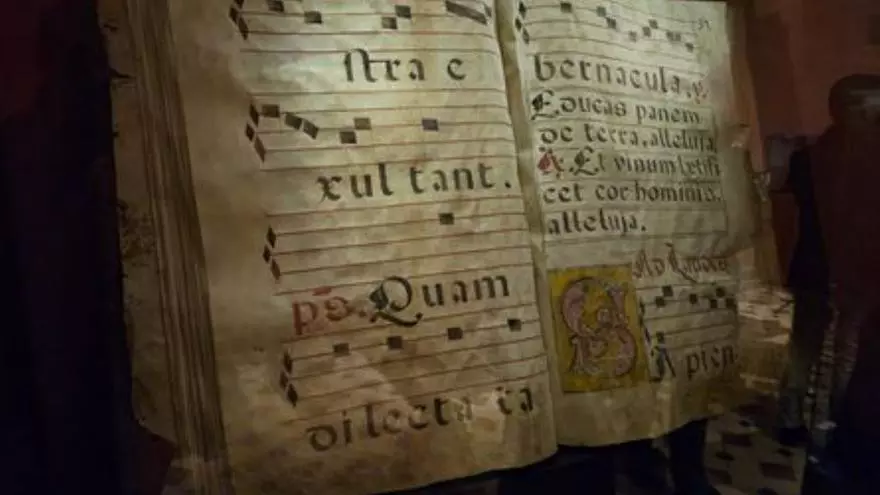 stra e
xultant.
ps. Quam
dilecta ta
bernacula. ℣.
Educas panem
de terra, alleluja,
℟. Et vinum lætifi
cet cor hominis.
alleluja.
Ad Laudes
Sapien